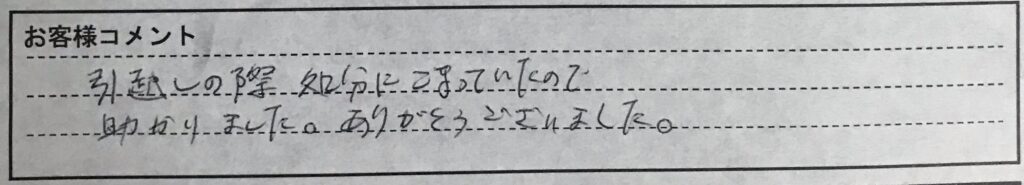 お客様コメント
引越しの際 処分にこまっていたので
助かりました。ありがとうございました。